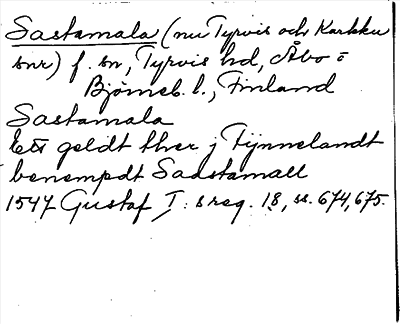 Sastamala (nu Tyrvis och Karkku
snr) f. sn, Tyrvis hd, Åbo o
Björneb. l., Finland
Sastamala
Ett geldt ther j Fijnnelandt
benempdt Sadstamall
1547 Gustaf I: s reg. 18, ss. 674, 675.